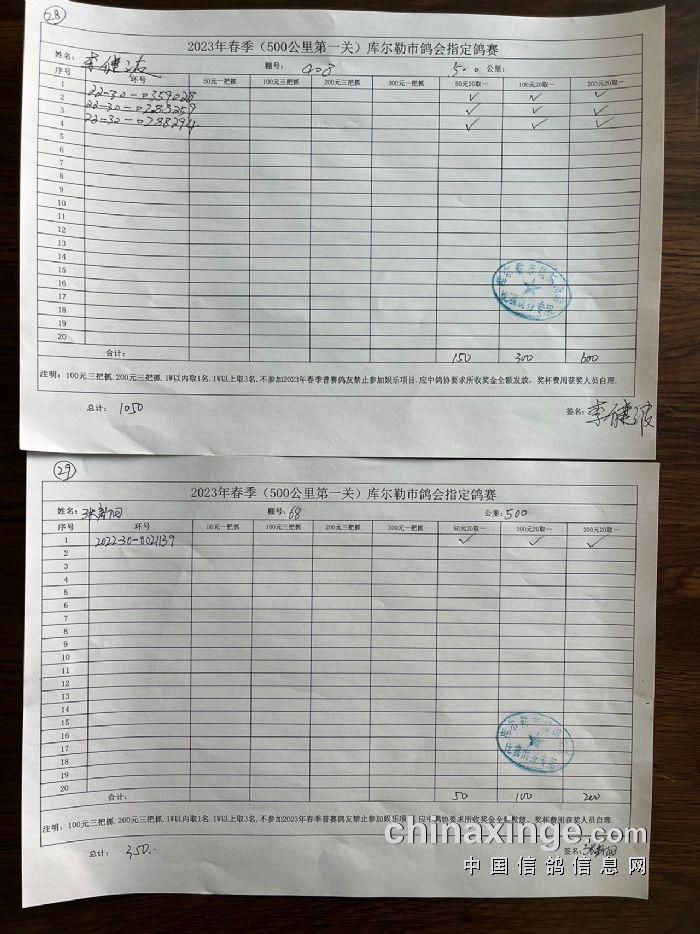 28
2023年春季（500公里第一关）库尔勒市鸽会指定鸽赛
姓名: 李健波 棚号: 408 500 公里:
序号 环号 50元一把抓 100元三把抓 200元三把抓 300元一把抓 50元20取一 100元20取一 200元20取一
1
2 22-30-0359028 ✓ ✓ ✓
3 22-30-0288269 ✓ ✓ ✓
4 22-30-0288294 ✓ ✓ ✓
5
6
7
8
9
10
11
12
13
14
15
16
17
18
19
20
合计: 150 300 600
注明: 100元三把抓.200元三把抓.1W以内取1名.1W以上取3名.不参加2023年春季普赛鸽友禁止参加娱乐项目.应中鸽协要求所收奖金全额发放，奖杯费用获奖人员自理.
总计: 1050 签名: 李健波
29
2023年春季（500公里第一关）库尔勒市鸽会指定鸽赛
姓名: 棚号: 68 公里: 500
序号 环号 50元一把抓 100元三把抓 200元三把抓 300元一把抓 50元20取一 100元20取一 200元20取一
1 2022-30-0021139 ✓ ✓ ✓
2
3
4
5
6
7
8
9
10
11
12
13
14
15
16
17
18
19
20
合计: 50 100 200
注明: 100元三把抓.200元三把抓.1W以内取1名.1W以上取3名.不参加2023年春季普赛鸽友禁止参加娱乐项目.应中鸽协要求所收奖金全额发放，奖杯费用获奖人员自理.
总计: 350.. 签名:
chinaxinge.com
中国信鸽信息网